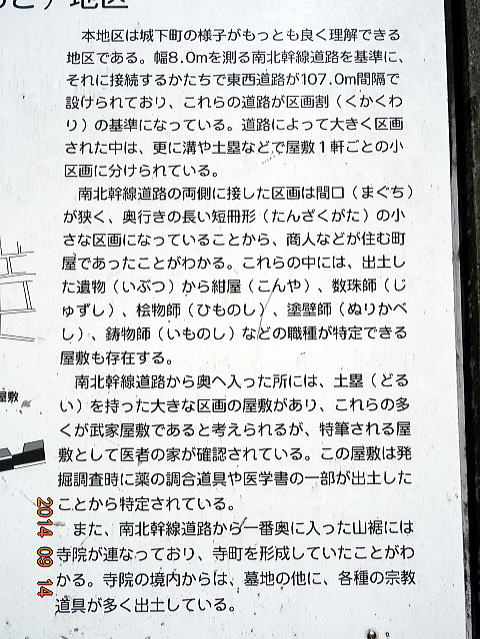 ど）地区
本地区は城下町の様子がもっとも良く理解できる
地区である。幅8.0mを測る南北幹線道路を基準に、
それに接続するかたちで東西道路が107.0m間隔で
設けられており、これらの道路が区画割（くかくわ
り）の基準になっている。道路によって大きく区画
された中は、更に溝や土塁などで屋敷1軒ごとの小
区画に分けられている。
南北幹線道路の両側に接した区画は間口（まぐち）
が狭く、奥行きの長い短冊形（たんざくがた）の小
さな区画になっていることから、商人などが住む町
屋であったことがわかる。これらの中には、出土し
た遺物（いぶつ）から紺屋（こんや）、数珠師（じ
ゅずし）、桧物師（ひものし）、塗壁師（ぬりかべ
し）、鋳物師（いものし）などの職種が特定できる
屋敷も存在する。
南北幹線道路から奥へ入った所には、土塁（どる
い）を持った大きな区画の屋敷があり、これらの多
くが武家屋敷であると考えられるが、特筆される屋
敷として医者の家が確認されている。この屋敷は発
掘調査時に薬の調合道具や医学書の一部が出土した
ことから特定されている。
また、南北幹線道路から一番奥に入った山裾には
寺院が連なっており、寺町を形成していたことがわ
かる。寺院の境内からは、墓地の他に、各種の宗教
道具が多く出土している。
屋敷
2014 09 14